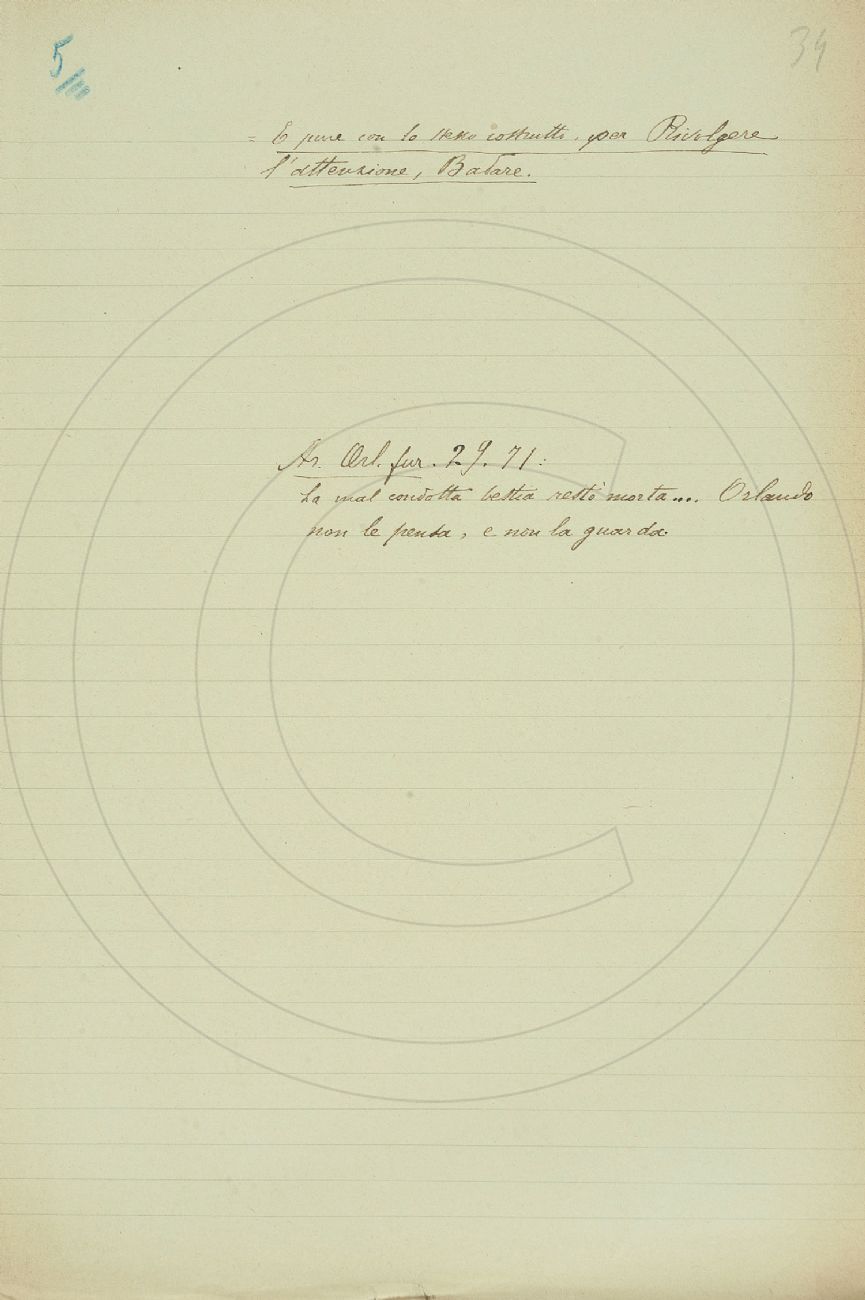 5
34
= E pure con lo stesso costrutto, per Rivolgere
l'attenzione, Badare.
Ar. Orl. fur. 29. 71:
La mal condotta bestia restò morta... Orlando
non le pensa, e non la guarda.